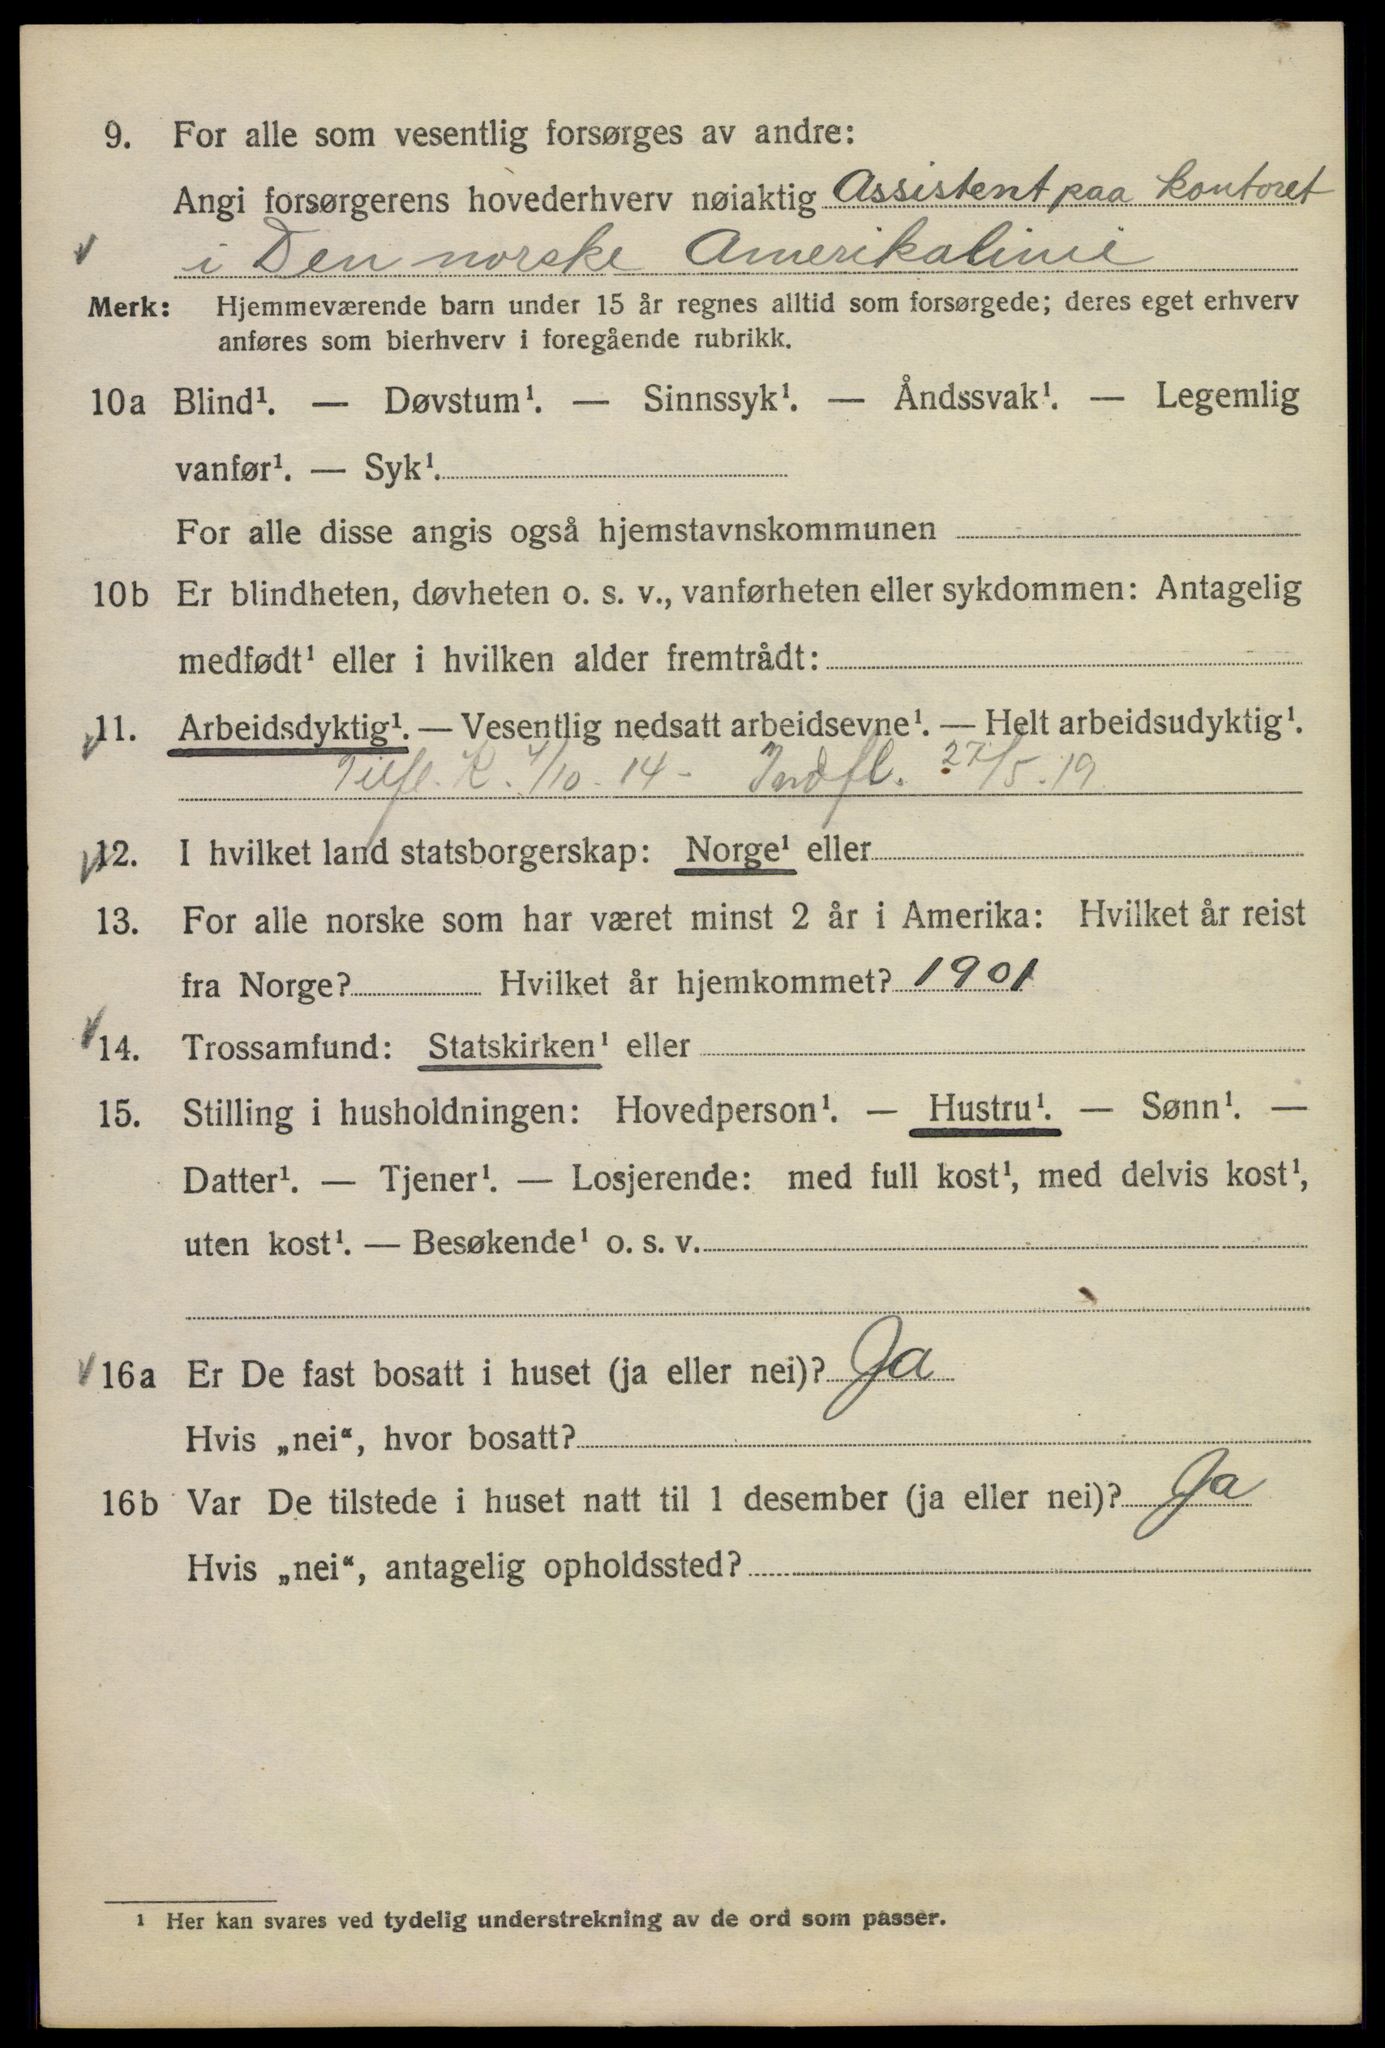 9. For alle som vesentlig forsørges av andre:
Angi forsørgerens hovederhverv nøiaktig Assistent paa kontoret
i Den norske Amerikalinie
Merk: Hjemmeværende barn under 15 år regnes alltid som forsørgede; deres eget erhverv
anføres som bierhverv i foregående rubrikk.
10a Blind¹. — Døvstum¹. — Sinnssyk¹. — Åndssvak¹. — Legemlig
vanfør¹. — Syk¹.
For alle disse angis også hjemstavnskommunen
10b Er blindheten, døvheten o. s. v., vanførheten eller sykdommen: Antagelig
medfødt¹ eller i hvilken alder fremtrådt:
11. Arbeidsdyktig¹. — Vesentlig nedsatt arbeidsevne¹. — Helt arbeidsudyktig¹.
Tilfl. K. 4/10 - 14 - Indfl. 27/5 . 19
12. I hvilket land statsborgerskap: Norge¹ eller
13. For alle norske som har været minst 2 år i Amerika: Hvilket år reist
fra Norge? Hvilket år hjemkommet? 1901
14. Trossamfund: Statskirken¹ eller
15. Stilling i husholdningen: Hovedperson¹. — Hustru¹. — Sønn¹. —
Datter¹. — Tjener¹. — Losjerende: med full kost¹, med delvis kost¹,
uten kost¹. — Besøkende¹ o. s. v.
16a Er De fast bosatt i huset (ja eller nei)? Ja
Hvis „nei“, hvor bosatt?
16b Var De tilstede i huset natt til 1 desember (ja eller nei)? Ja
Hvis „nei“, antagelig opholdssted?
¹ Her kan svares ved tydelig understrekning av de ord som passer.